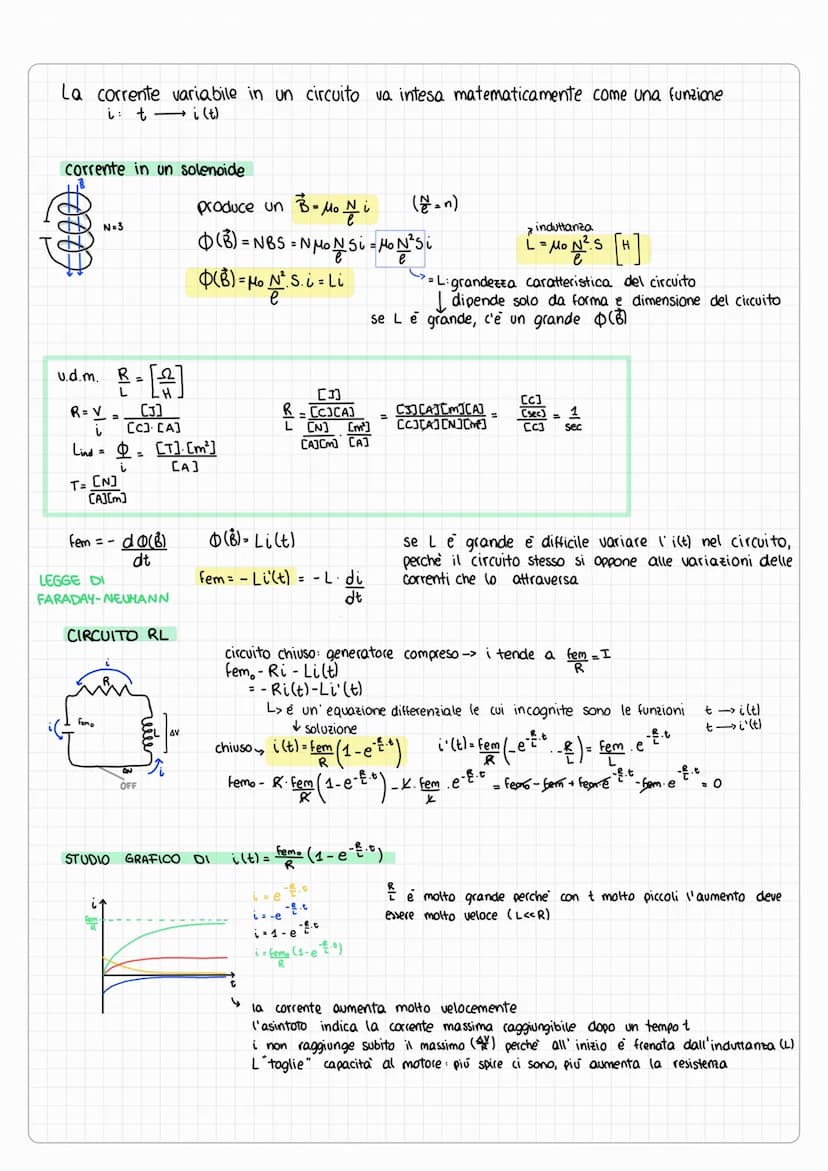 La corrente variabile in un circuito va intesa matematicamente come una funzione
i: t ⟶ i(t)
corrente in un solenoide
B
N=3
produce un B⃗ = μ₀ N/ℓ i (N/ℓ = n)
Φ(B⃗) = NBS = N μ₀ N/ℓ S i = μ₀ N²/ℓ S i
Φ(B⃗) = μ₀ N²/ℓ · S · i = Li
induttanza
L = μ₀ N²/ℓ · S [H]
= L: grandezza caratteristica del circuito
dipende solo da forma e dimensione del circuito
se L è grande, c'è un grande Φ(B⃗)
u.d.m. R/L = [Ω/H]
R = V/i = [J]/[C]·[A]
L ind = Φ/i = [T]·[m²]/[A]
T = [N]/[A][m]
R/L = [J]/[C][A] / [N]/[A][m] · [m²]/[A] = [J][A][m][A]/[C][A][N][m²] = [C]/[sec]/[C] = 1/sec
fem = - dΦ(B⃗)/dt Φ(B⃗) = Li(t)
LEGGE DI
FARADAY-NEUMANN
fem = - Li'(t) = - L · di/dt
se L è grande è difficile variare l'i(t) nel circuito,
perchè il circuito stesso si oppone alle variazioni delle
correnti che lo attraversa
CIRCUITO RL
i
R
i
fem₀
L
ΔV
ON
i
OFF
circuito chiuso: generatore compreso → i tende a fem/R = I
fem₀ - Ri - Li(t)
= - Ri(t) - Li'(t)
↳ è un'equazione differenziale le cui incognite sono le funzioni t → i(t)
t → i'(t)
↓ soluzione
chiuso → i(t) = fem/R (1 - e^(-R/L·t)) i'(t) = fem/R (-e^(-R/L·t) · -R/L) = fem/L · e^(-R/L·t)
fem₀ - R · fem/R (1 - e^(-R/L·t)) - L · fem/L · e^(-R/L·t) = fem₀ - fem + fem e^(-R/L·t) - fem · e^(-R/L·t) = 0
STUDIO GRAFICO DI i(t) = fem₀/R (1 - e^(-R/L·t))
i
fem/R
t
i = e^(-R/L·t)
i = -e^(-R/L·t)
i = 1 - e^(-R/L·t)
i = fem₀/R (1 - e^(-R/L·t))
R/L è molto grande perchè con t molto piccoli l'aumento deve
essere molto veloce (L<<R)
la corrente aumenta molto velocemente
l'asintoto indica la corrente massima raggiungibile dopo un tempo t
i non raggiunge subito il massimo (ΔV/R) perchè all'inizio è frenata dall'induttanza (L)
L "toglie" capacità al motore: più spire ci sono, più aumenta la resistema